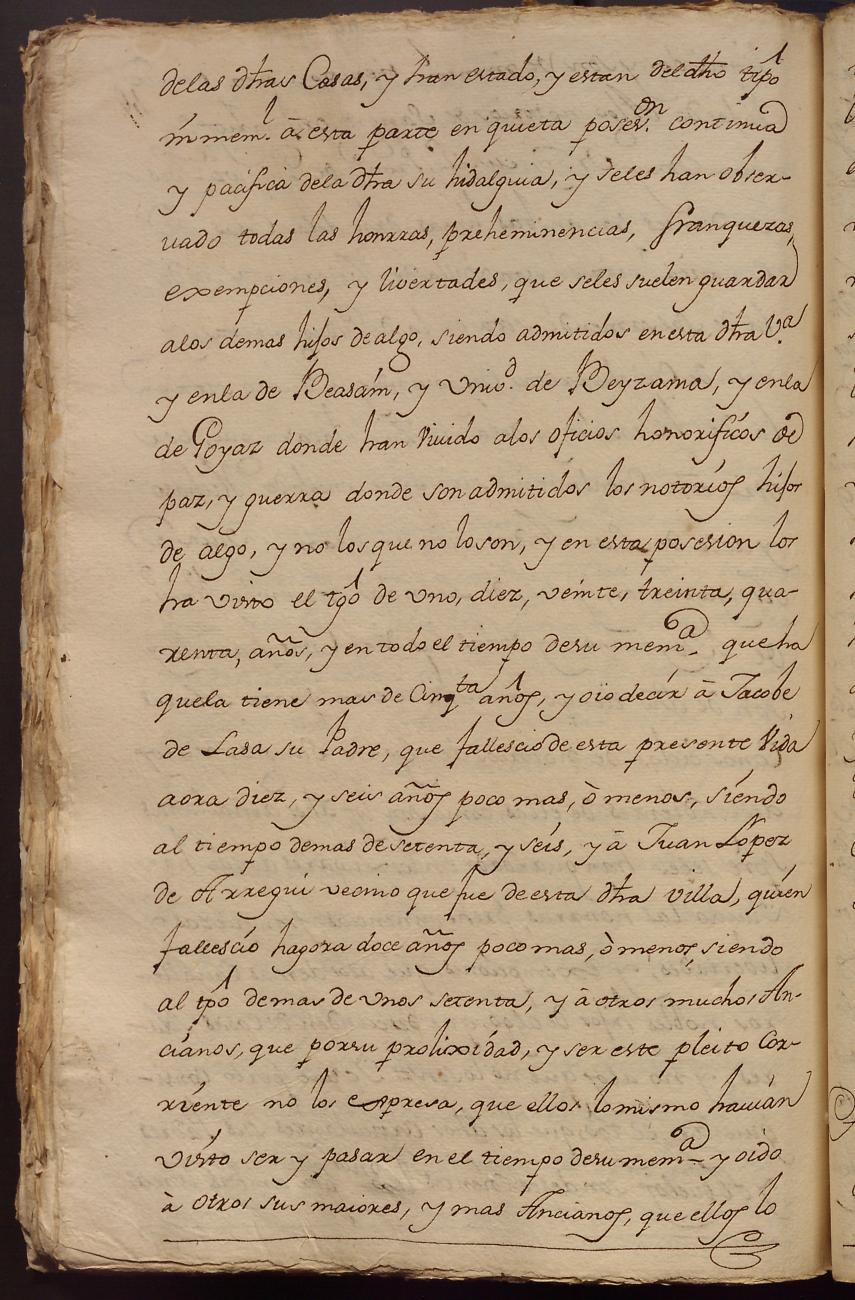 delas dhas Casas, y han estado, y estan del dho tipo
inmeml. â esta parte en quieta posesn. continua
y pacifica dela dha su hidalguia, y seles han obser-
vado todas las honrras, preheminencias, franquezas,
exempciones, y livertades, que seles suelen guardar
alos demas hijos de algo, siendo admitidos en esta dha Va.
y enla de Beasaín, y Univd. de Beyzama, y enla
de Goyaz donde han vivido alos oficios honorificos de
paz, y guerra donde son admitidos los notorios hijos
de algo, y no los que no lo son, y en esta posesion los
ha visto el tgo de uno, diez, veinte, treinta, qua-
renta, años, y en todo el tiempo de su mema. que ha
quela tiene mas de Cinqta años, y oio decir â Jacobe
de Lasa su Padre, que fallescio de esta presente vida
aora diez, y seis años poco mas, ò menos, siendo
al tiempo demas de setenta, y seis, y â Juan Lopez
de Arregui vecino que fue de esta dha villa, quien
fallescio hagora doce años poco mas, ò menos, siendo
al tpo demas de unos setenta, y â otros muchos An-
cianos, que por su prolixidad, y ser este pleito Cor-
riente no los espresa, que ellos lo mismo havian
visto ser y pasar en el tiempo de su mema. y oido
à otros sus maiores, y mas Ancianos, que ellos lo